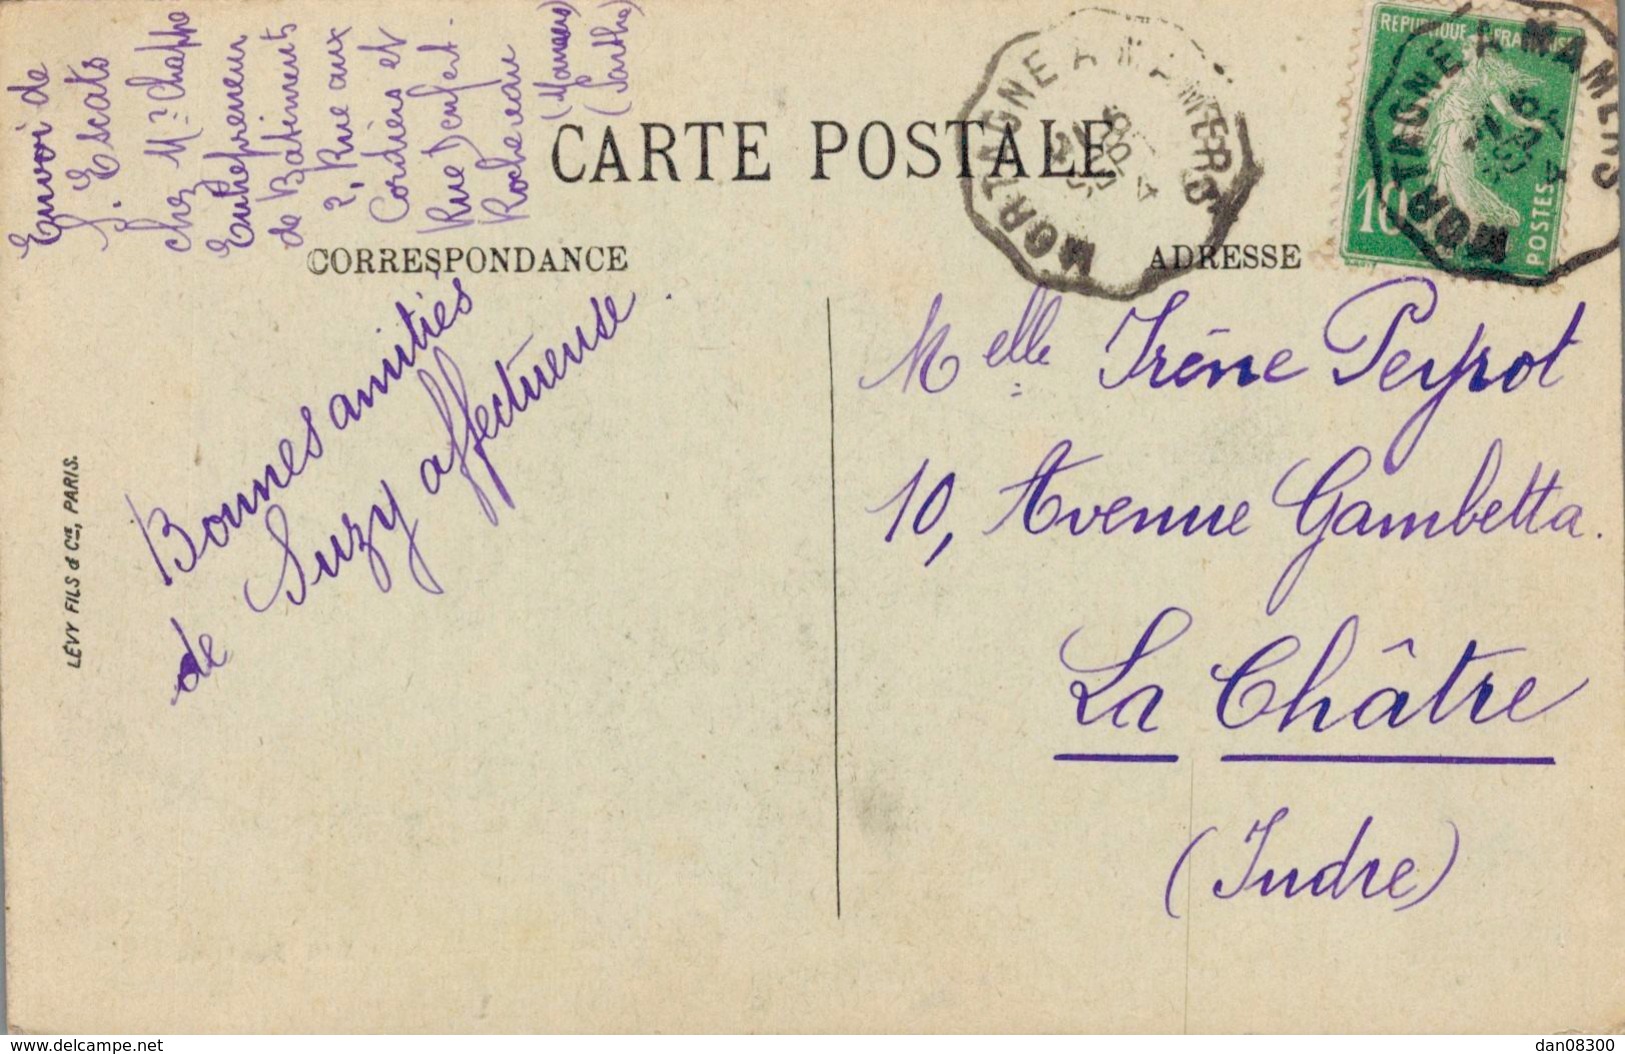 Envoi de
S. Escats
chez Mr Chappe
Entrepreneur
de Batiments
2, Rue aux
Cordiers et
Rue Denfert
Rochereau
(Mamers)
(Sarthe)
CARTE POSTALE
CORRESPONDANCE
ADRESSE
MORTAGNE A MAMERS
REPUBLIQUE FRANCAISE
10c
POSTES
MORTAGNE A MAMERS
Bonnes amitiés
de Suzy affectueuse.
LÉVY FILS & Cie, PARIS.
Melle Irène Peyrot
10, Avenue Gambetta.
La Châtre
(Indre)
www.delcampe.net
dan08300